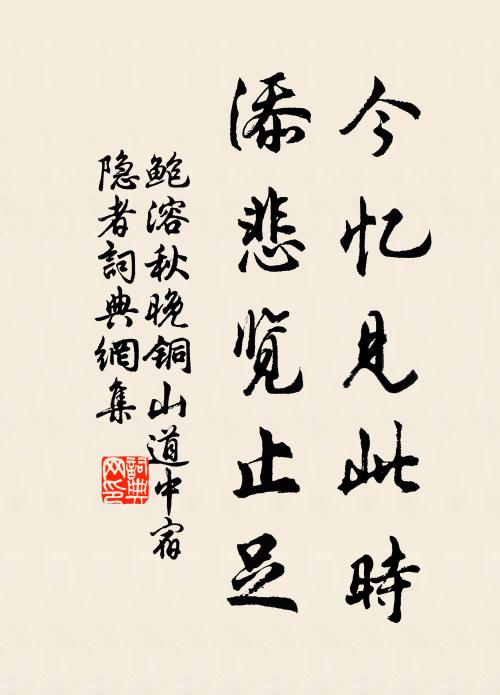 今忆见此時
添悲览止足
鲍溶秋晚铜山道中宿
隐者詞典網集
詞典
网印